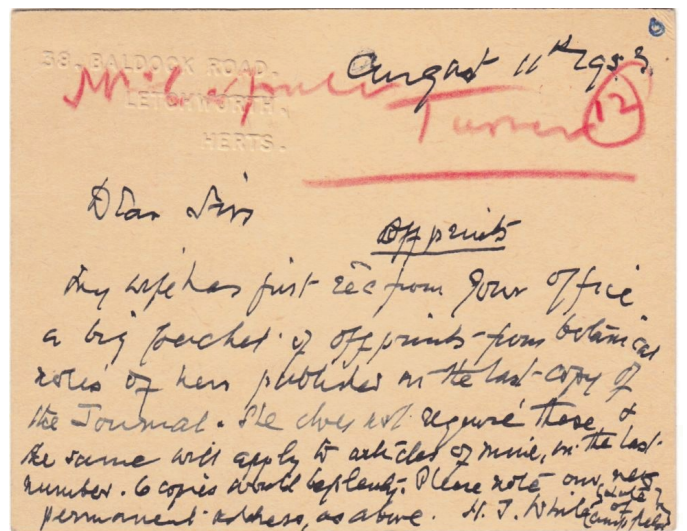 38, BALDOCK ROAD,
LETCHWORTH,
HERTS.
August 11th 1953.
Turner 12
Dear Sirs
Offprints
My wife has just rec from your office
a big packet of offprints from botanical
notes of hers published in the last copy of
the Journal. She does not require these, &
the same will apply to articles of mine, in the last
number. 6 copies would be plenty. Please note our new
permanent address, as above. H. J.